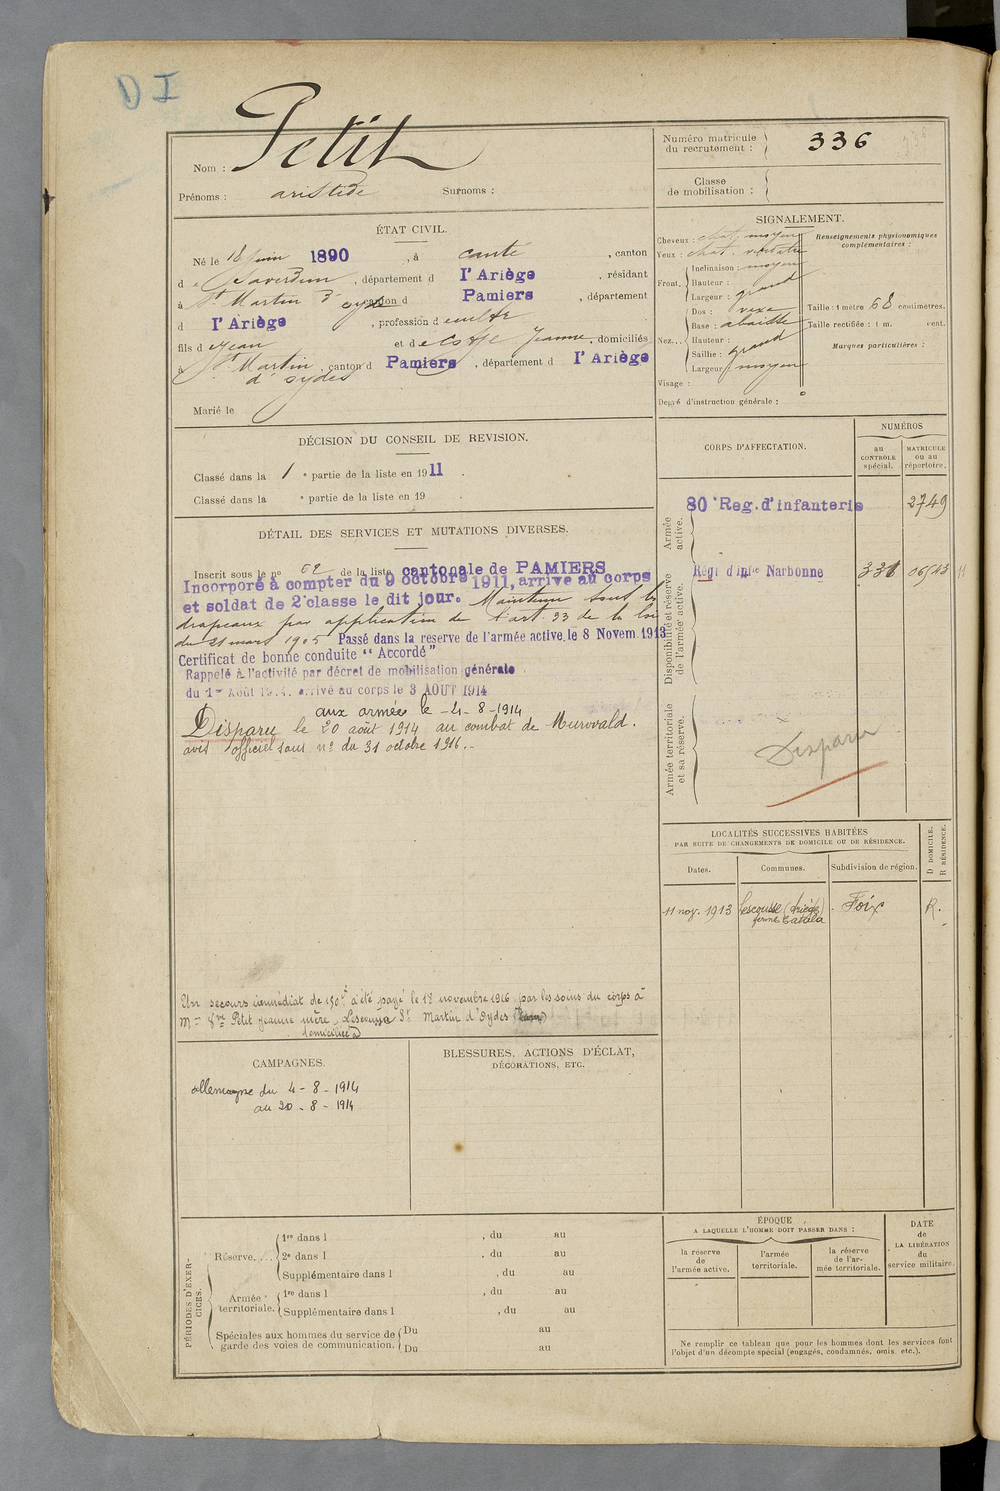 D I
Nom : Petit
Prénoms : aristide Surnoms :
Numéro matricule du recrutement : 336
Classe de mobilisation :
ÉTAT CIVIL.
Né le 18 juin 1890, à cante, canton
d e Saverdun, département d l'Ariège, résidant
à St Martin d'oydes canton d Pamiers, département
d l'Ariège, profession d cultr
fils d e Jean et d e Jeanne, domiciliés
à St Martin d'oydes, canton d Pamiers, département d l'Ariège
Marié le
SIGNALEMENT.
Cheveux : chat. moyen
Yeux : chat. verdâtre
Front. Inclinaison : moyen
Hauteur :
Largeur : grand
Nez... Dos : vexe
Base : abaissé
Hauteur :
Saillie : grand
Largeur : moyen
Visage :
Degré d'instruction générale :
Renseignements physionomiques complémentaires :
Taille : 1 mètre 68 centimètres.
Taille rectifiée : 1 m. cent.
Marques particulières :
DÉCISION DU CONSEIL DE REVISION.
Classé dans la 1 e partie de la liste en 1911.
Classé dans la e partie de la liste en 19 .
DÉTAIL DES SERVICES ET MUTATIONS DIVERSES.
Inscrit sous le no 62 de la liste cantonale de PAMIERS
Incorporé à compter du 9 octobre 1911, arrivé au corps
et soldat de 2e classe le dit jour. Maintenu sous les
drapeaux par application de l'art. 33 de la loi
du 21 mars 1905 Passé dans la réserve de l'armée active, le 8 Novem. 1913
Certificat de bonne conduite "Accordé"
Rappelé à l'activité par décret de mobilisation générale
du 1er Août 1914. arrivé au corps le 3 AOUT 1914
aux armées le -4-8-1914
Disparu le 20 août 1914 au combat de Murvald.
avis officiel sous no du 31 octobre 1916.-
Un secours immédiat de 150f a été payé le 18 novembre 1916 par les soins du corps à
Mme Vve Petit Jeanne mère, St Martin d'Oydes
domiciliée à
CORPS D'AFFECTATION.
NUMÉROS
au CONTRÔLE spécial.
MATRICULE ou au répertoire.
Armée active.
80e Reg. d'infanterie 2749
Disponibilité et réserve de l'armée active.
Régt d'Infie Narbonne 331 06513 11
Armée territoriale et sa réserve.
Disparu
LOCALITÉS SUCCESSIVES HABITÉES
PAR SUITE DE CHANGEMENTS DE DOMICILE OU DE RÉSIDENCE.
D DOMICILE. R RÉSIDENCE.
Dates. Communes. Subdivision de région.
11 nov. 1913 Lescousse (Ariège) Foix R.
ferme Catala
CAMPAGNES.
Allemagne du 4-8-1914
au 20-8-1914
BLESSURES, ACTIONS D'ÉCLAT,
DÉCORATIONS, ETC.
PÉRIODES D'EXERCICES.
Réserve.... 1re dans l , du au
2e dans l , du au
Supplémentaire dans l , du au
Armée territoriale. 1re dans l , du au
Supplémentaire dans l , du au
Spéciales aux hommes du service de garde des voies de communication. Du au
Du au
ÉPOQUE
A LAQUELLE L'HOMME DOIT PASSER DANS :
la réserve de l'armée active.
l'armée territoriale.
la réserve de l'armée territoriale.
DATE de LA LIBÉRATION du service militaire.
Ne remplir ce tableau que pour les hommes dont les services font
l'objet d'un décompte spécial (engagés, condamnés, omis, etc.).